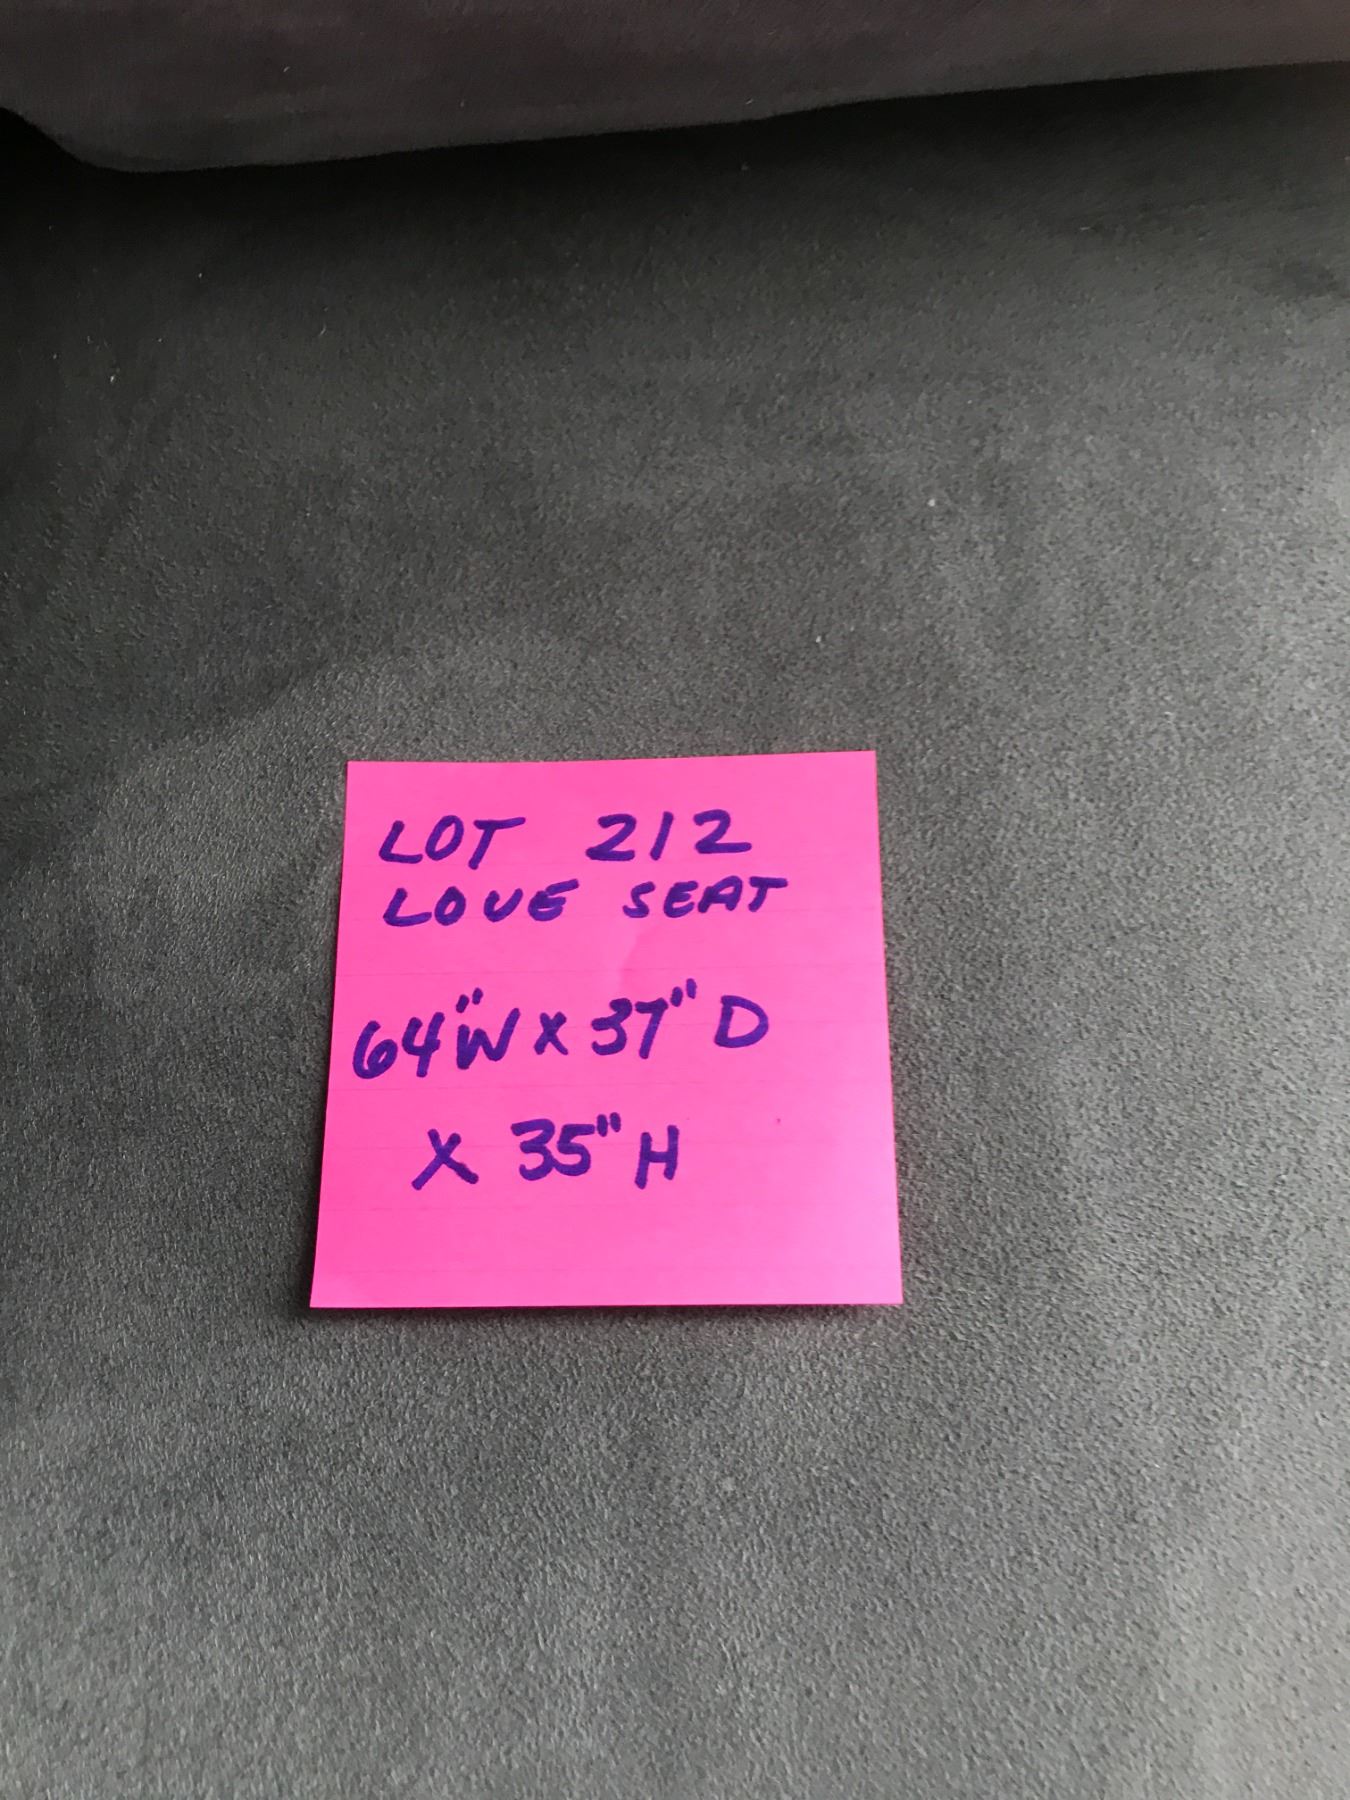 LOT 212
LOVE SEAT
64"W X 37" D
X 35" H